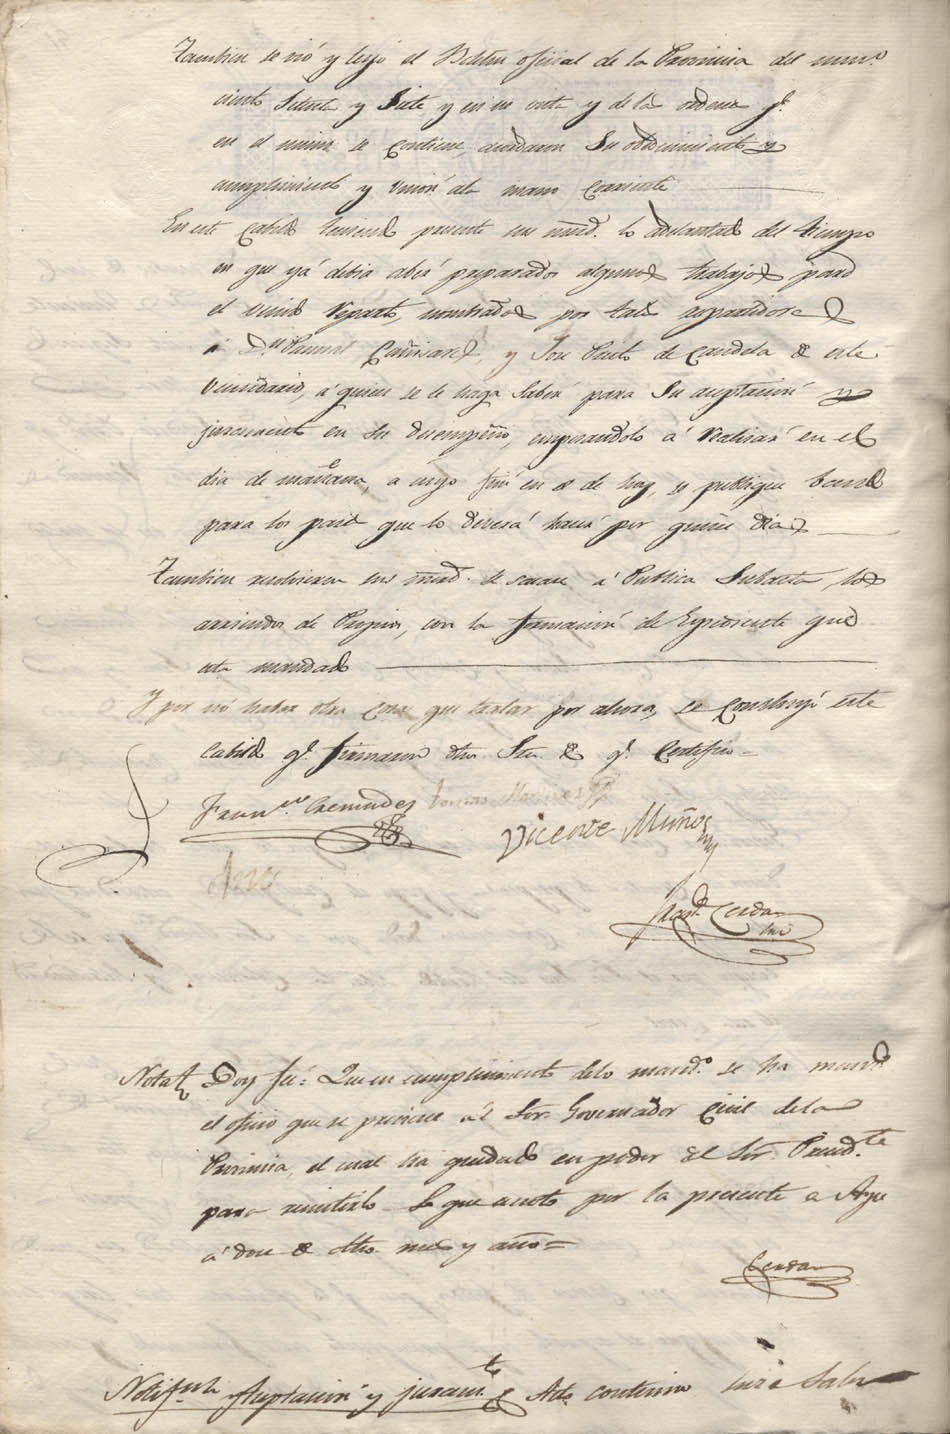 Tambien se vió y leyó el Boletin oficial de la Provincia del num.º
ciento Setenta y Siete y en su vista y de las ordenes q.e
en el mismo se contiene, acordaron Su obedecimiento y
cumplimiento y union á la mano corriente
En este Cabildo teniendo presente sus mrd.s lo adelantado del tiempo
en que yá debia aber preparados algunos trabajos para
el vecinal Reparto, nombrados por tales repartidores
á D.n y Jose Pinto de Candela de este
Vecindario, á quienes se le haga Saber para Su aceptacion y
juramento en Su desempeño, empezandolo á Realizar en el
dia de mañana, á cuyo fin en el de hoy, se publique bando
para los que que lo deverá hacer por quince dias
Tambien resolvieron sus mrd.s se saque á Publica Subasta los
arriendos de Propios, con la formacion de Expediente que
esta mandado
Y por nó haber otra cosa que tratar por ahora, se concluyó este
Cabildo q.e firmaron dhos Sres de q.e Certifico =
Fran.co
Vicente Muñoz
Cerdan
Srio
Nota Doy fé: Que en cumplimiento de lo mand.º se ha
el oficio que se previene al Sor. Governador Civil de la
Provincia, el cual ha quedado en poder del Sor. Presid.te
para remitirlo Lo que anoto por la presente á
á doce de dho. mes y año =
Cerdan
aceptacion y juram.to Acto continuo hice Saber